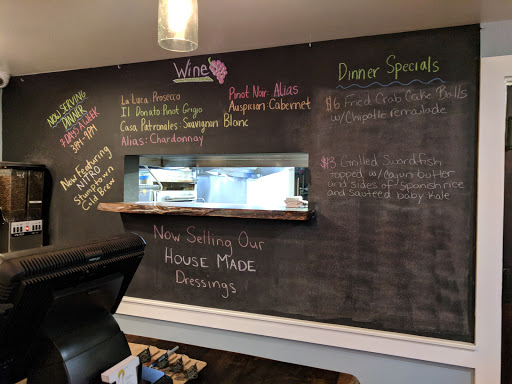 Wine
La Luca Prosecco
Il Donato: Pinot Grigio
Casa Patronales: Sauvignon Blanc
Alias: Chardonnay
Pinot Noir: Alias
Auspicion: Cabernet
NOW SERVING
DINNER
7 DAYS A WEEK
3PM-9PM
Now Featuring
NITRO
Stumptown
Cold Brew
Now Selling Our
HOUSE MADE
Dressings
Dinner Specials
$6 Fried Crab Cake Balls
w/Chipotle remoulade
Grilled Swordfish
topped w/cajun butter
and sides of Spanish rice
and sauteed baby kale